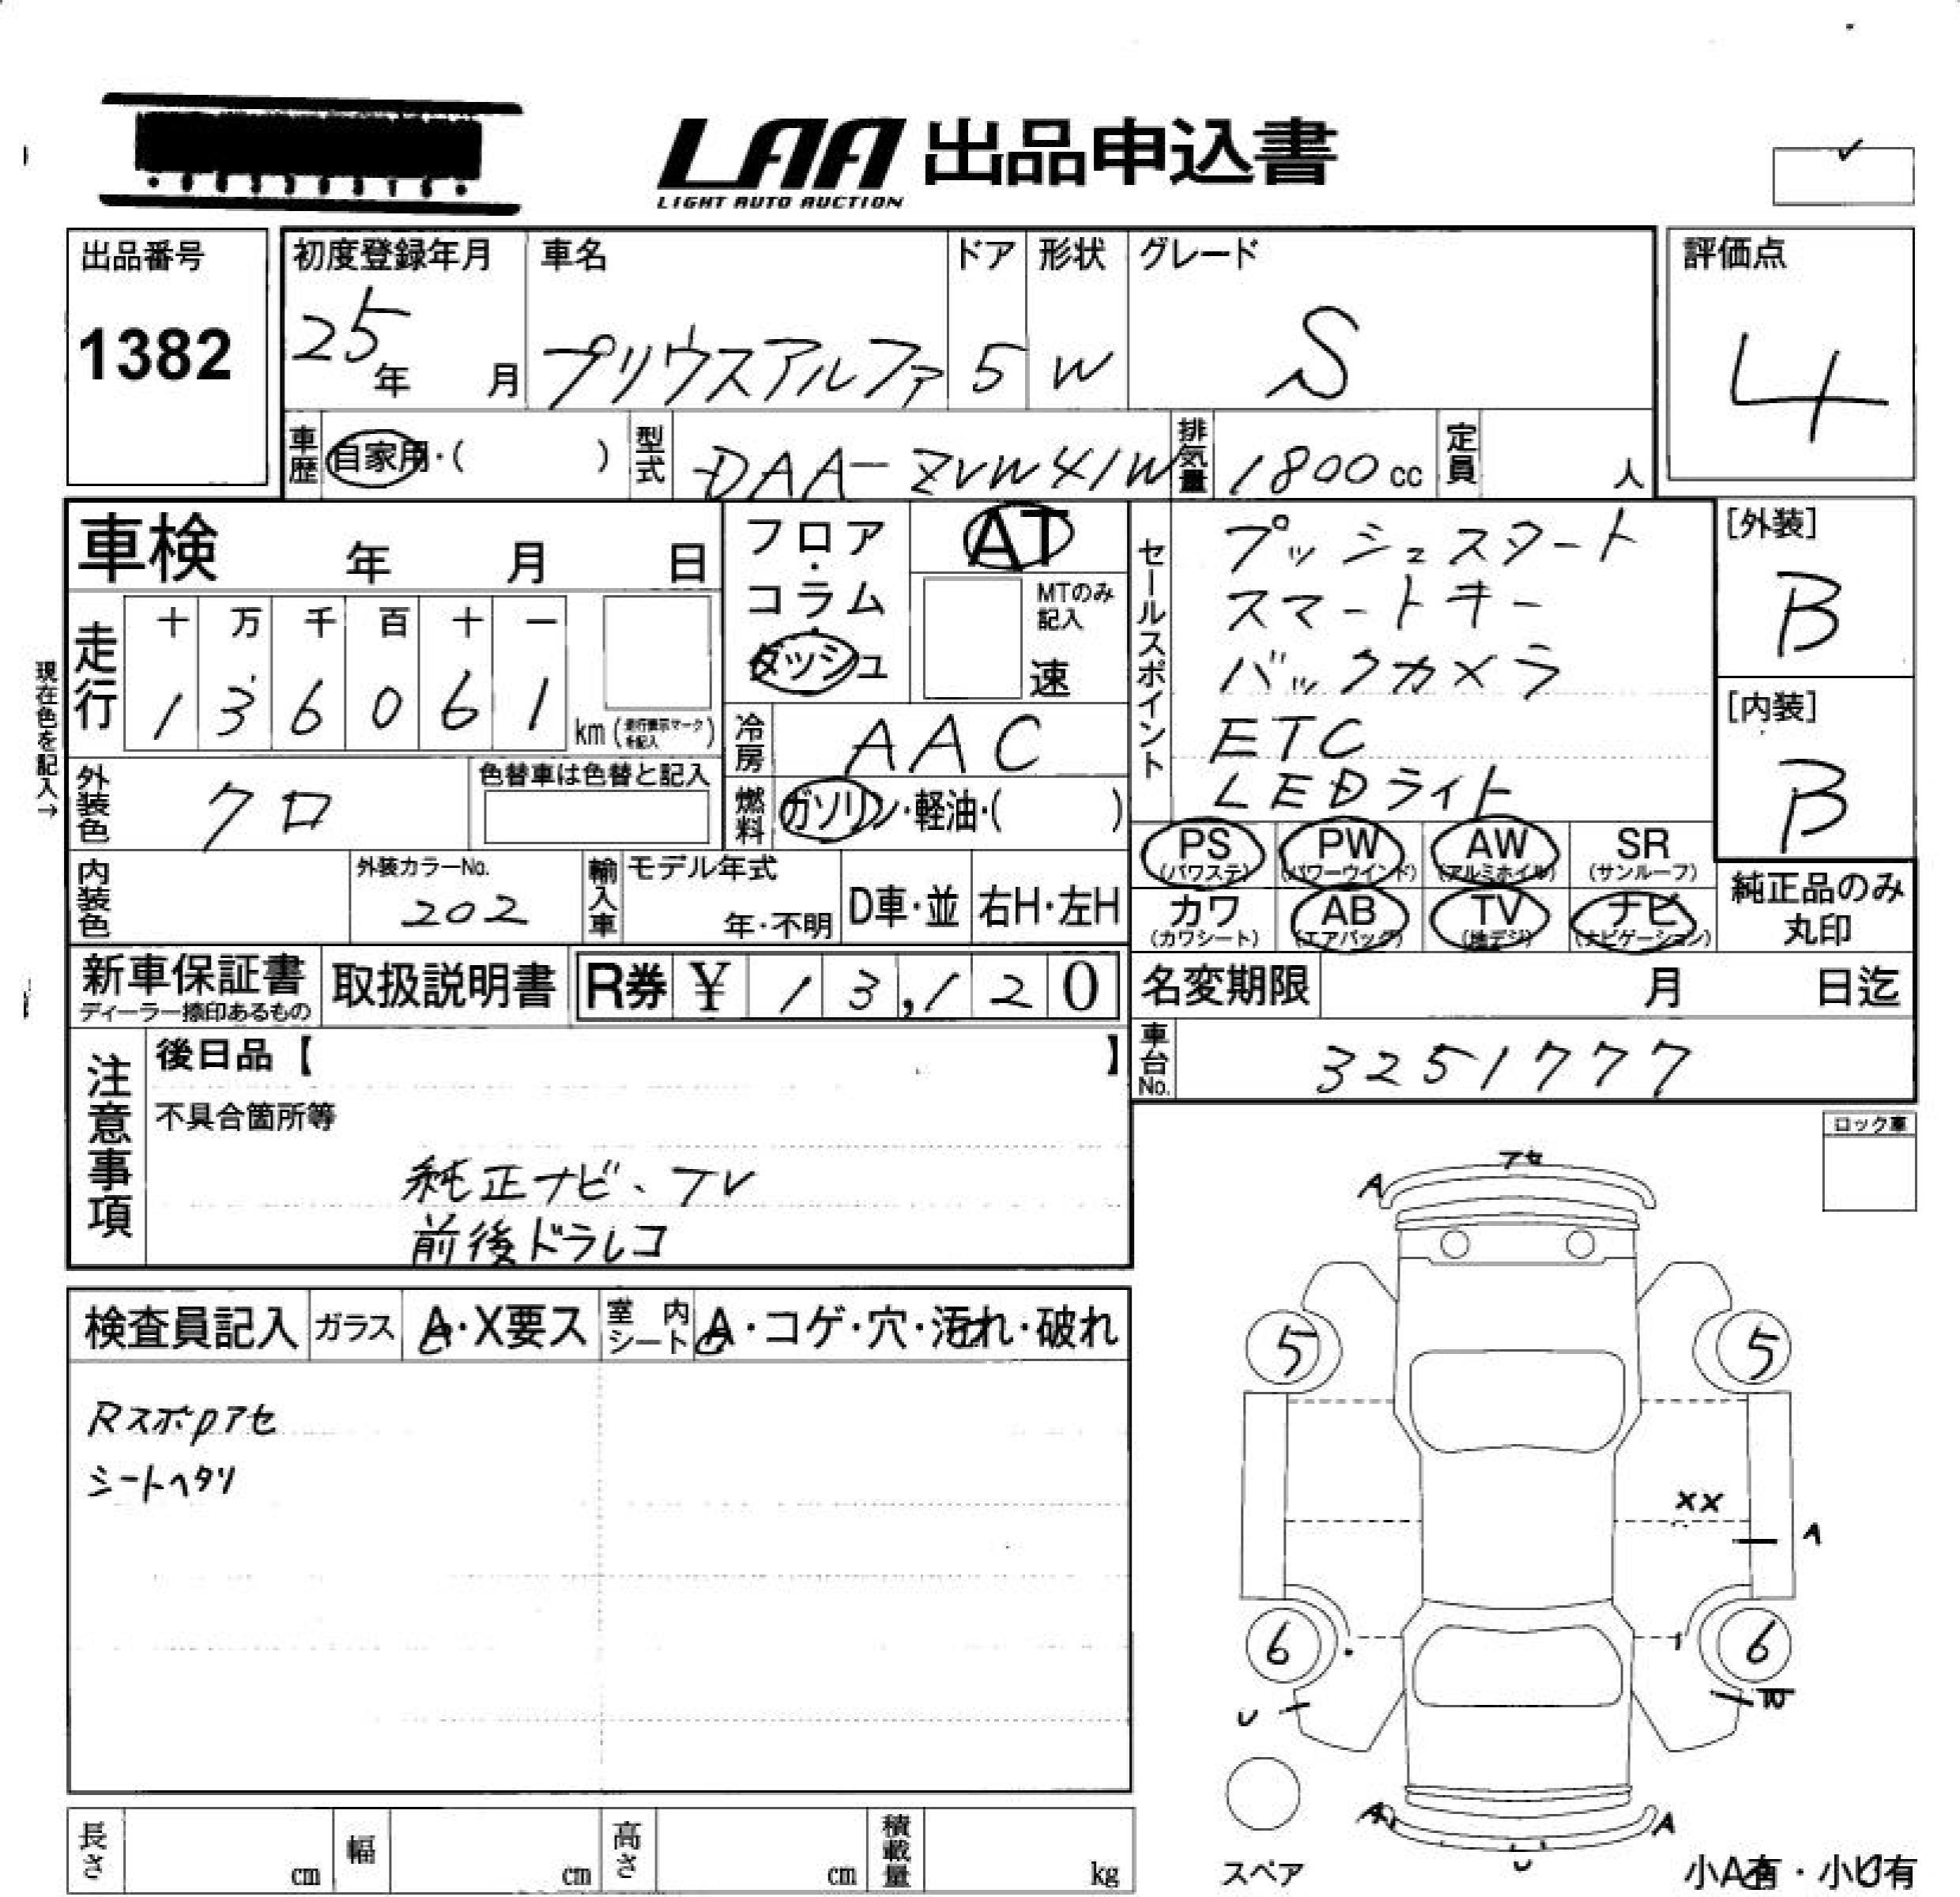 LAA 出品申込書
LIGHT AUTO AUCTION
出品番号
1382
初度登録年月
25年 月
車名
プリウスアルファ
ドア
5
形状
W
グレード
S
評価点
4
車歴 自家用・( )
型式 DAA-ZVW41W
排気量 1800cc
定員 人
車検 年 月 日
フロア・コラム・ダッシュ
AT
MTのみ記入
速
セールスポイント
プッシュスタート
スマートキー
バックカメラ
ETC
LEDライト
[外装]
B
[内装]
B
現在色を記入→
走行
十 万 千 百 十 一
1 3 6 0 6 1 km (走行表示マークを記入)
冷房 AAC
外装色 クロ
色替車は色替と記入
燃料 ガソリン・軽油・( )
PS (パワステ) PW (パワーウインド) AW (アルミホイル) SR (サンルーフ)
カワ (カワシート) AB (エアバッグ) TV (地デジ) ナビ (ナビゲーション)
純正品のみ丸印
内装色
外装カラーNo.
202
輸入車 モデル年式
年・不明
D車・並 右H・左H
新車保証書
ディーラー捺印あるもの
取扱説明書
R券 ¥ 13,120
名変期限 月 日迄
車台No. 3251777
注意事項
後日品【 】
不具合箇所等
純正ナビ、TV
前後ドラレコ
ロック車
検査員記入 ガラス A・X要ス 室内シート A・コゲ・穴・汚れ・破れ
Rスポpアセ
シートヘタリ
アセ
A
5 5
XX
A
6 6
U
A A
U
スペア
小A有・小U有
長さ cm 幅 cm 高さ cm 積載量 kg